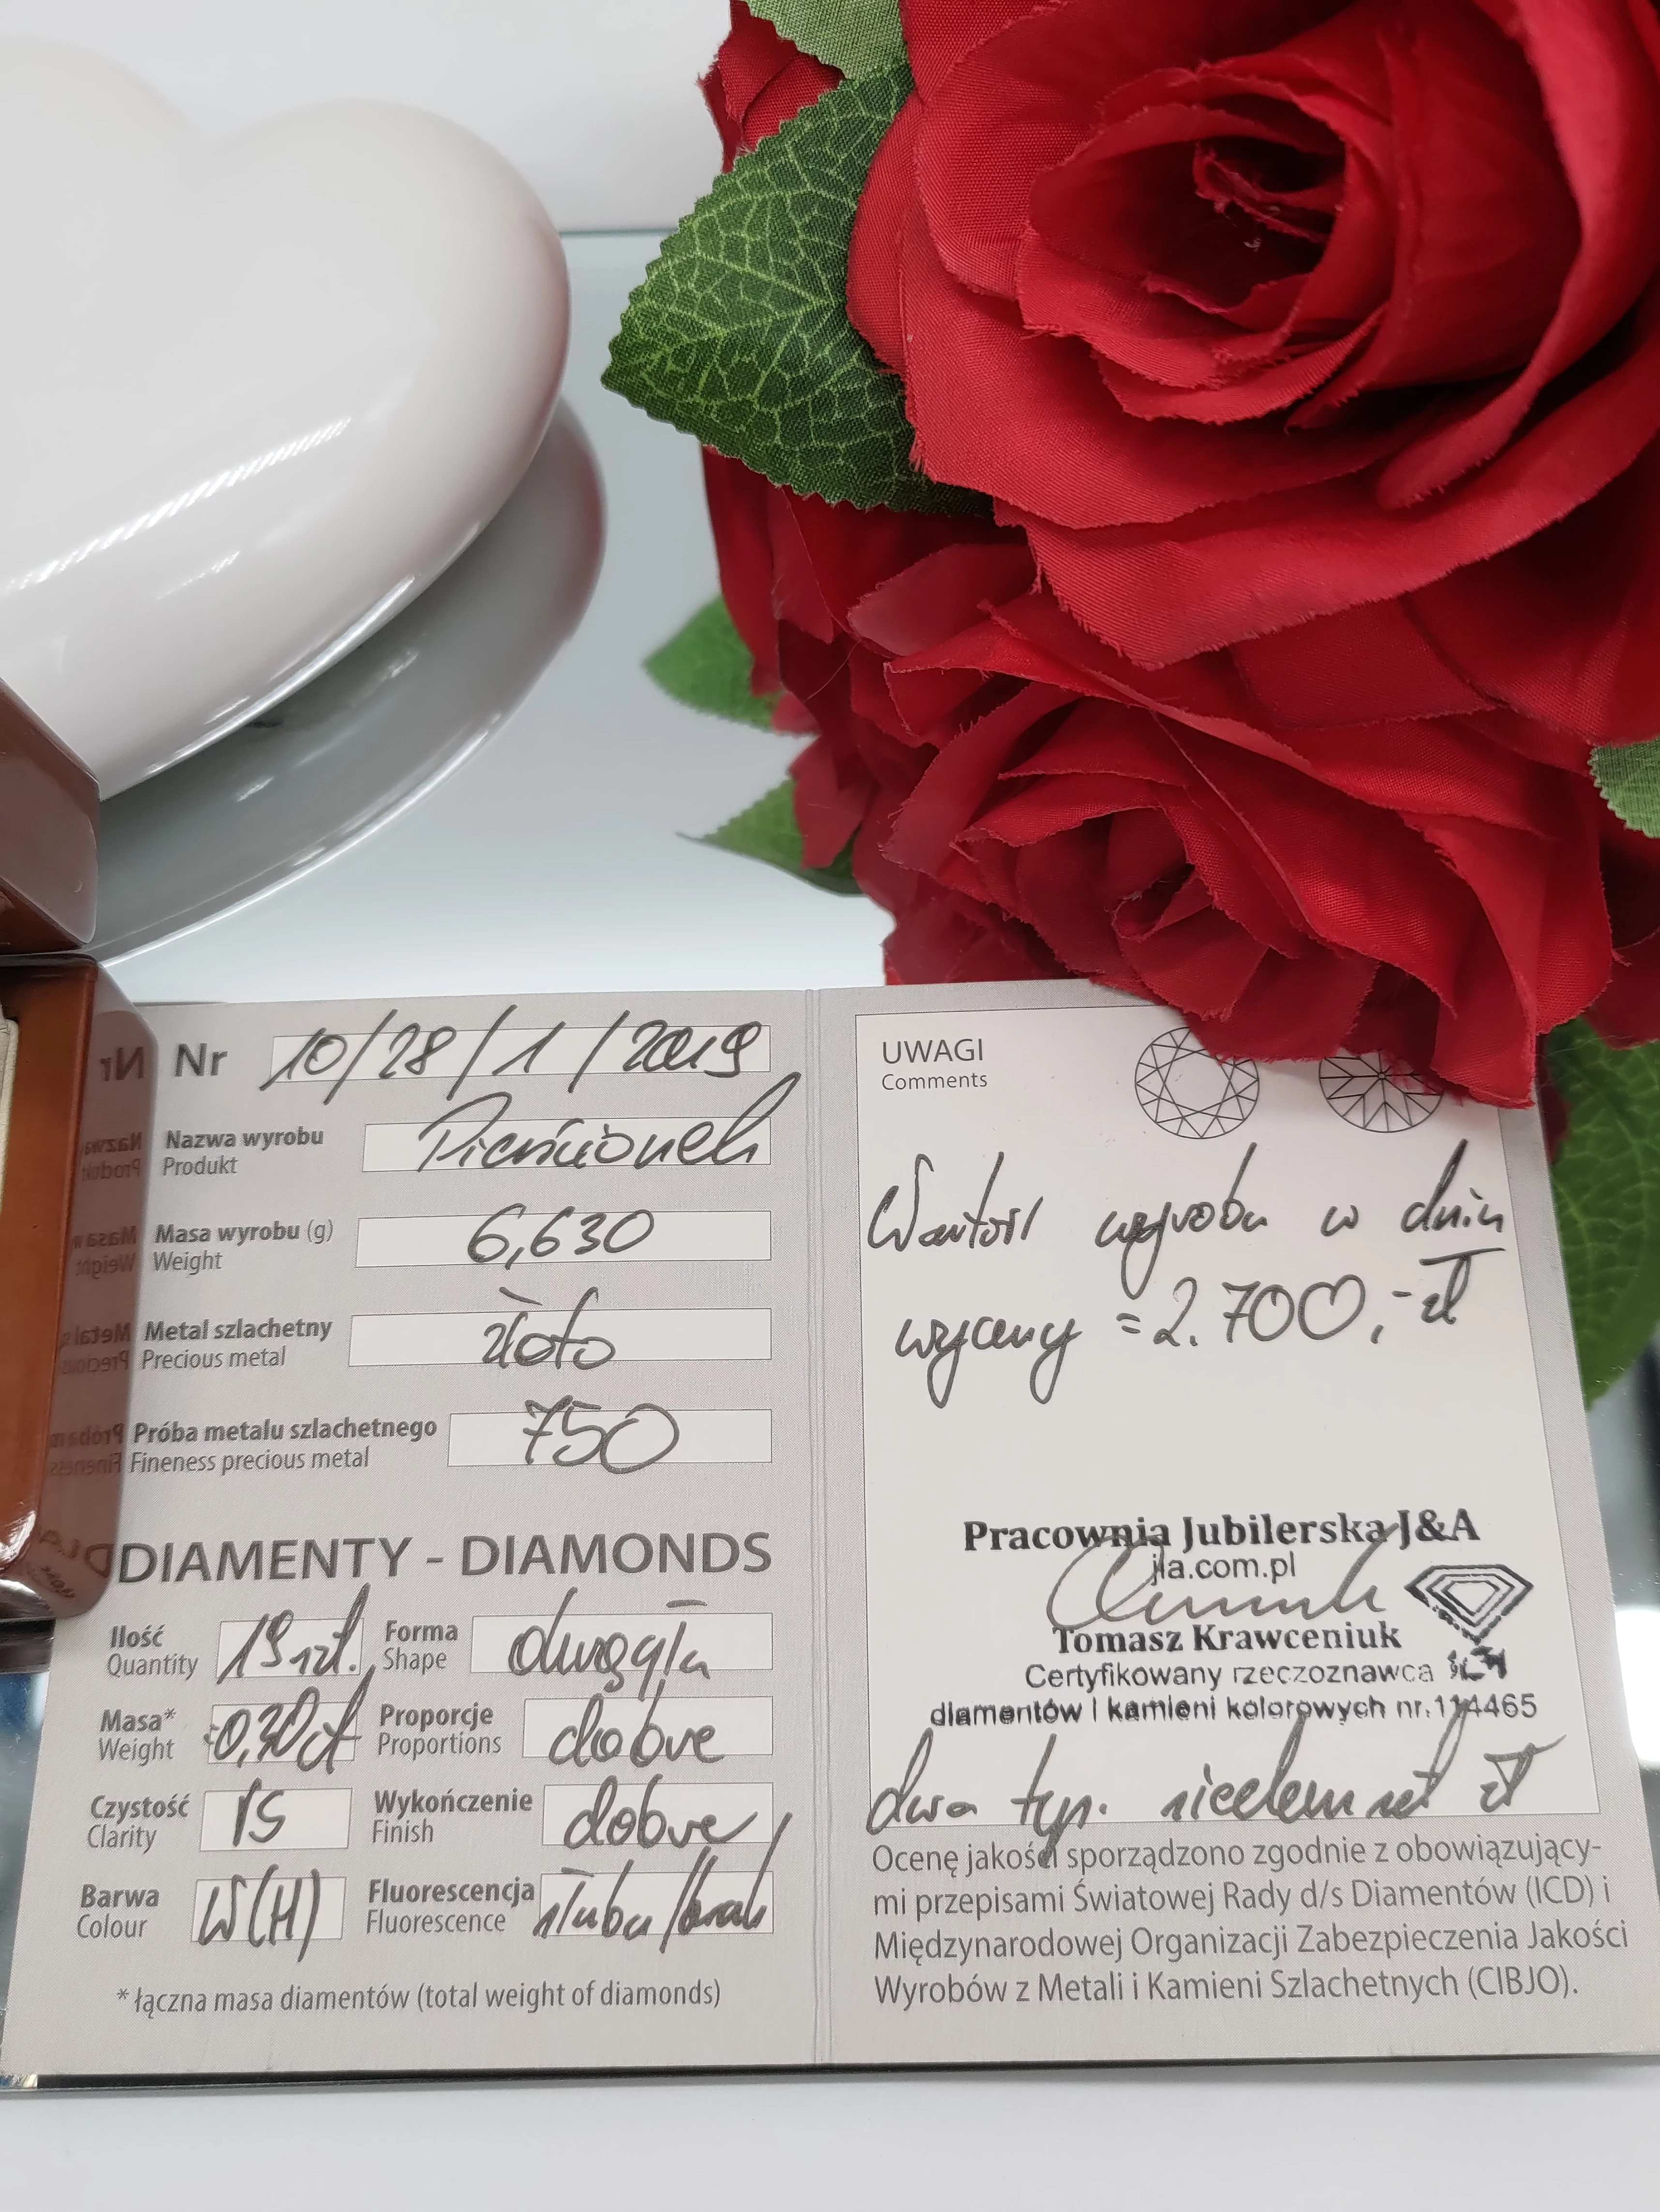 Nr 10/28/1/2019
Nazwa wyrobu Pierścionek
Produkt
Masa wyrobu (g) 6,630
Weight
Metal szlachetny złoto
Precious metal
Próba metalu szlachetnego 750
Fineness precious metal
DIAMENTY - DIAMONDS
Ilość 19 szt. Forma okrągła
Quantity Shape
Masa* 0,30ct Proporcje dobre
Weight Proportions
Czystość Wykończenie dobre
Clarity Finish
Barwa W(H) Fluorescencja słaba/brak
Colour Fluorescence
* łączna masa diamentów (total weight of diamonds)
UWAGI
Comments
Wartość wyrobu w dniu
wyceny = 2.700,- zł
Pracownia Jubilerska J&A
jla.com.pl
Tomasz Krawceniuk
Certyfikowany rzeczoznawca
diamentów i kamieni kolorowych nr.114465
dwa tys. siedemset zł
Ocenę jakości sporządzono zgodnie z obowiązujący-
mi przepisami Światowej Rady d/s Diamentów (ICD) i
Międzynarodowej Organizacji Zabezpieczenia Jakości
Wyrobów z Metali i Kamieni Szlachetnych (CIBJO).